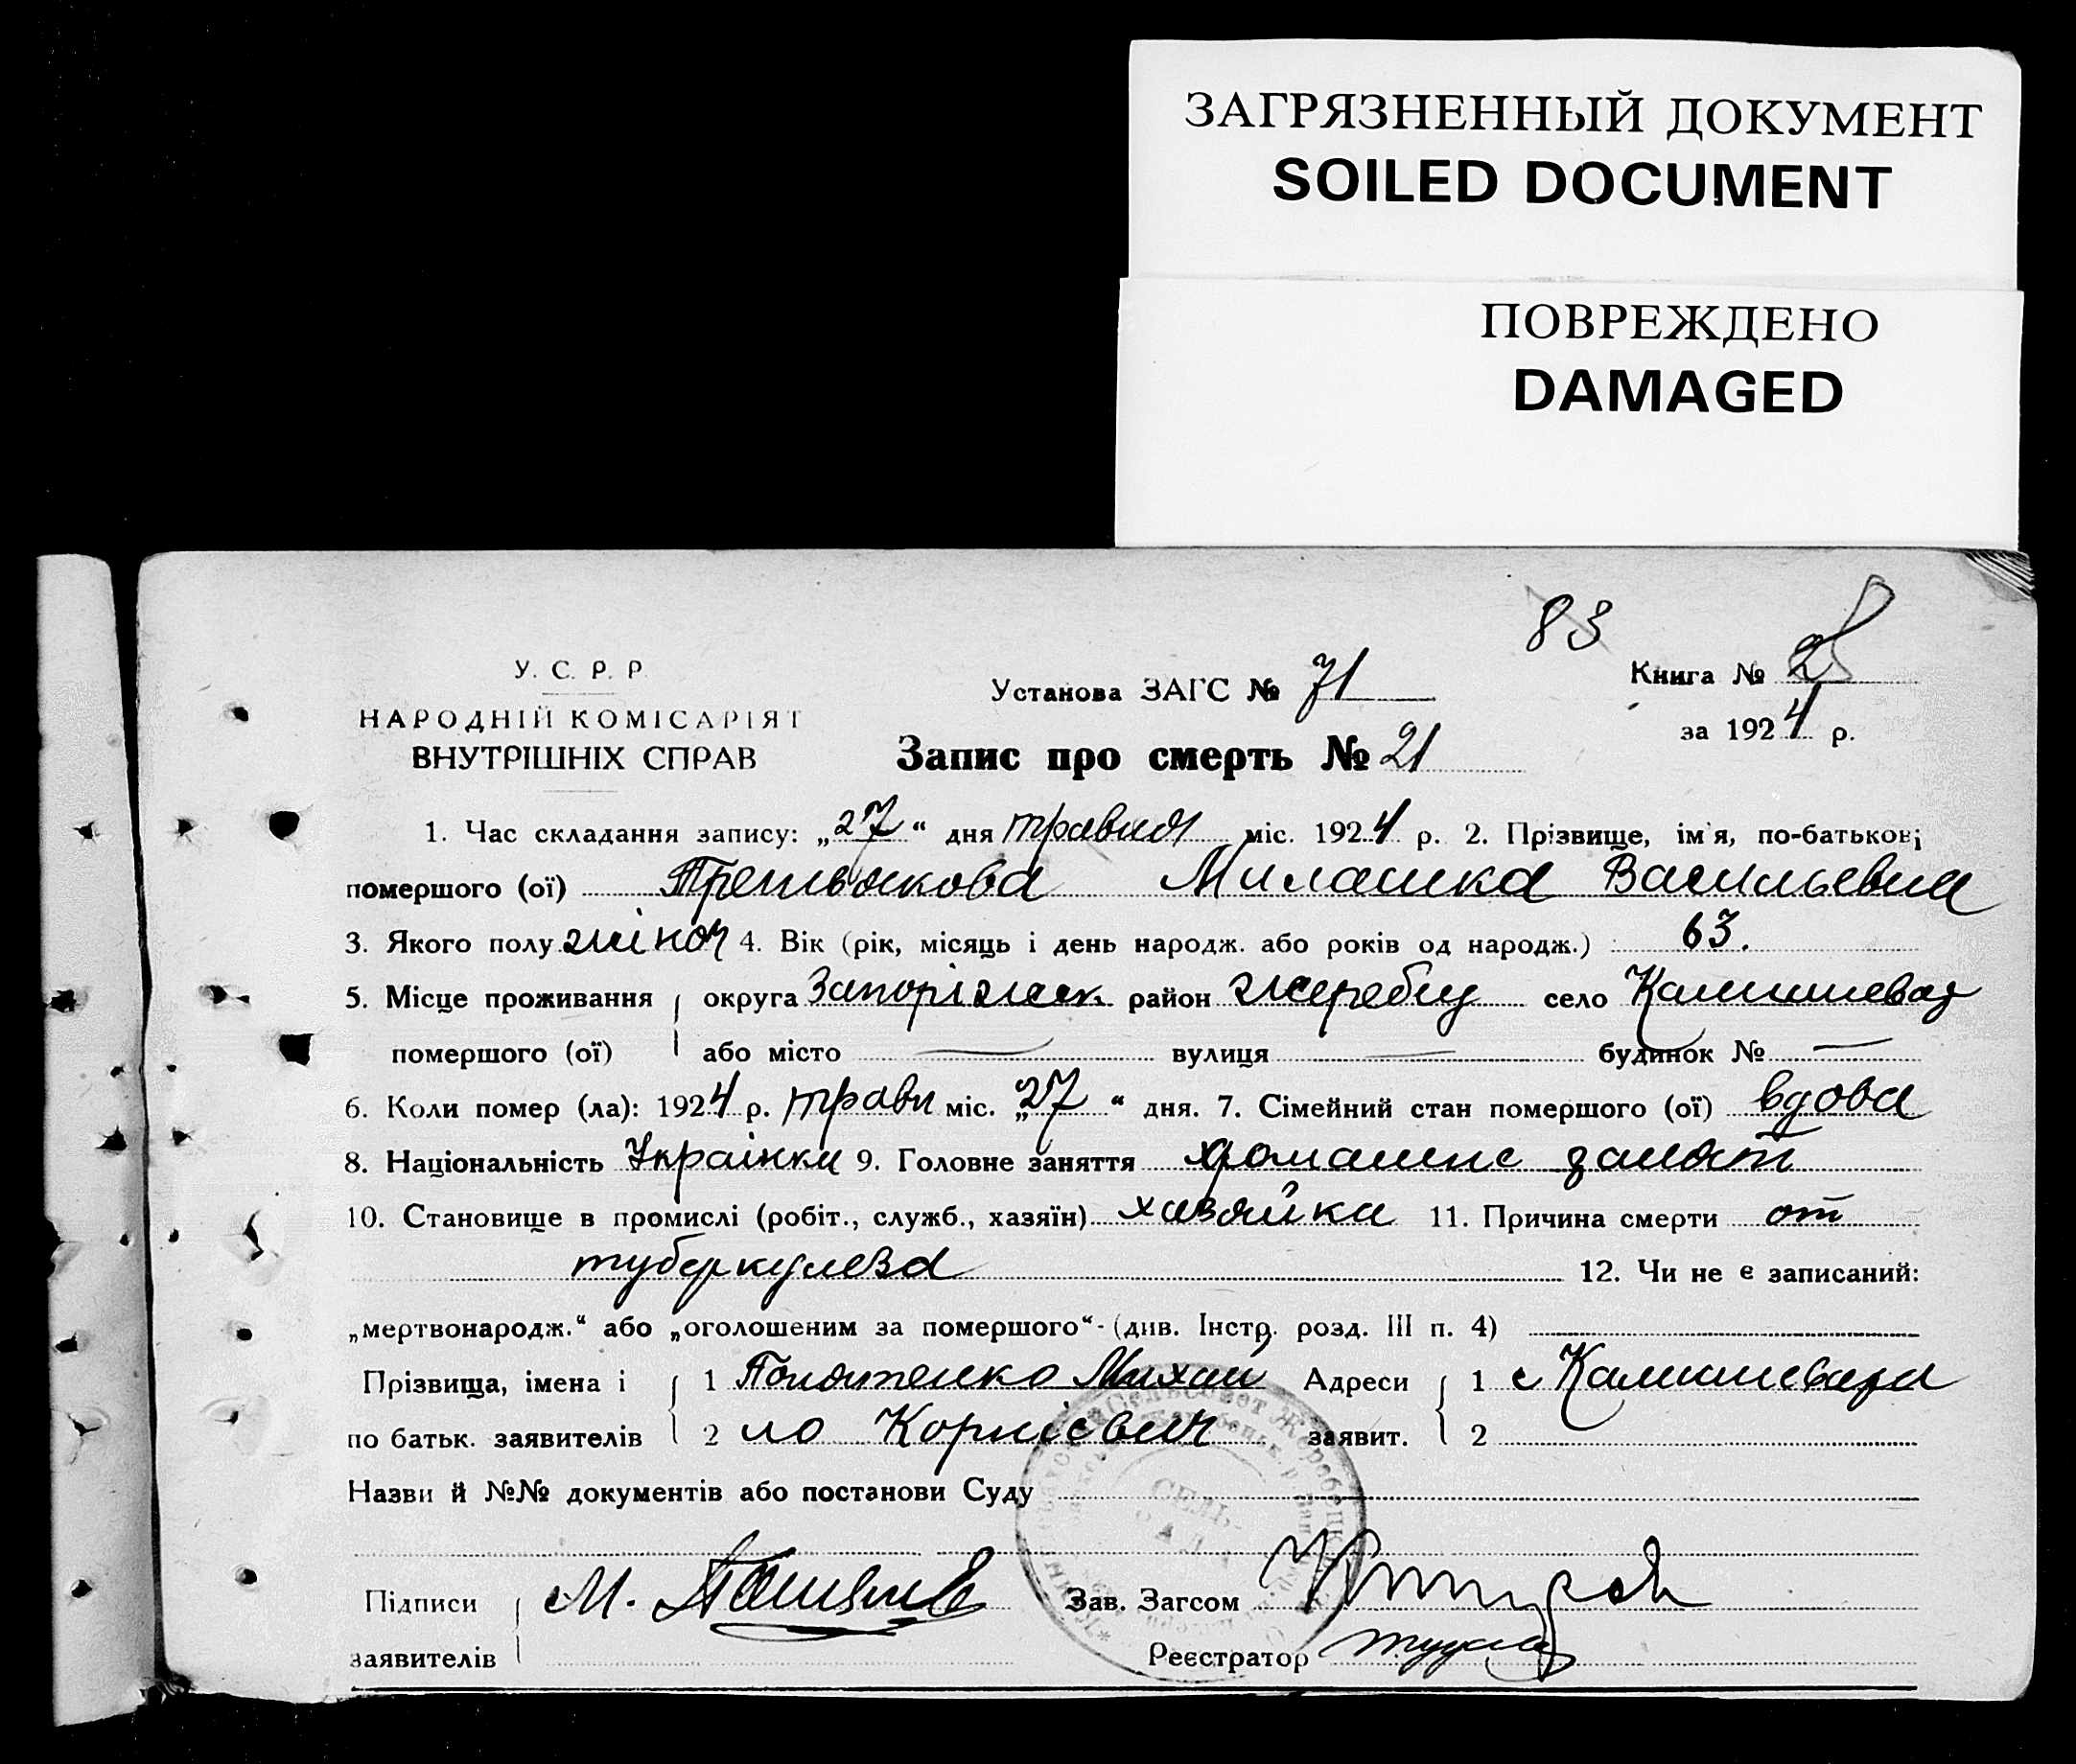 ЗАГРЯЗНЕННЫЙ ДОКУМЕНТ
SOILED DOCUMENT
ПОВРЕЖДЕНО
DAMAGED
83
У. С. Р. Р.
НАРОДНІЙ КОМІСАРІЯТ
ВНУТРІШНІХ СПРАВ
Установа ЗАГС № 71
Книга № 2
за 1924 р.
Запис про смерть № 21
1. Час складання запису: „27“ дня травня міс. 1924 р. 2. Прізвище, ім'я, по-батькові
помершого (ої) Третьякова Милашка Васильевна
3. Якого полу жіноч 4. Вік (рік, місяць і день народж. або років од народж.) 63.
5. Місце проживання округа Запоріжск. район Жеребец село Камишеваха
помершого (ої) або місто — вулиця — будинок № —
6. Коли помер (ла): 1924 р. травн міс. „27“ дня. 7. Сімейний стан помершого (ої) вдова
8. Національність Українка 9. Головне заняття домашнє занят
10. Становище в промислі (робіт., служб., хазяїн) хазяйка 11. Причина смерти от
туберкулеза 12. Чи не є записаний:
„мертвонародж.“ або „оголошеним за помершого“ - (див. Інстр. розд. III п. 4)
Прізвища, імена і 1 Михай Адреси 1 с Камишеваха
по батьк. заявителів 2 ло Корнієвич заявит. 2
Назви й №№ документів або постанови Суду
СЕЛЬ-
РАДА
Підписи М. Зав. Загсом
заявителів Реєстратор